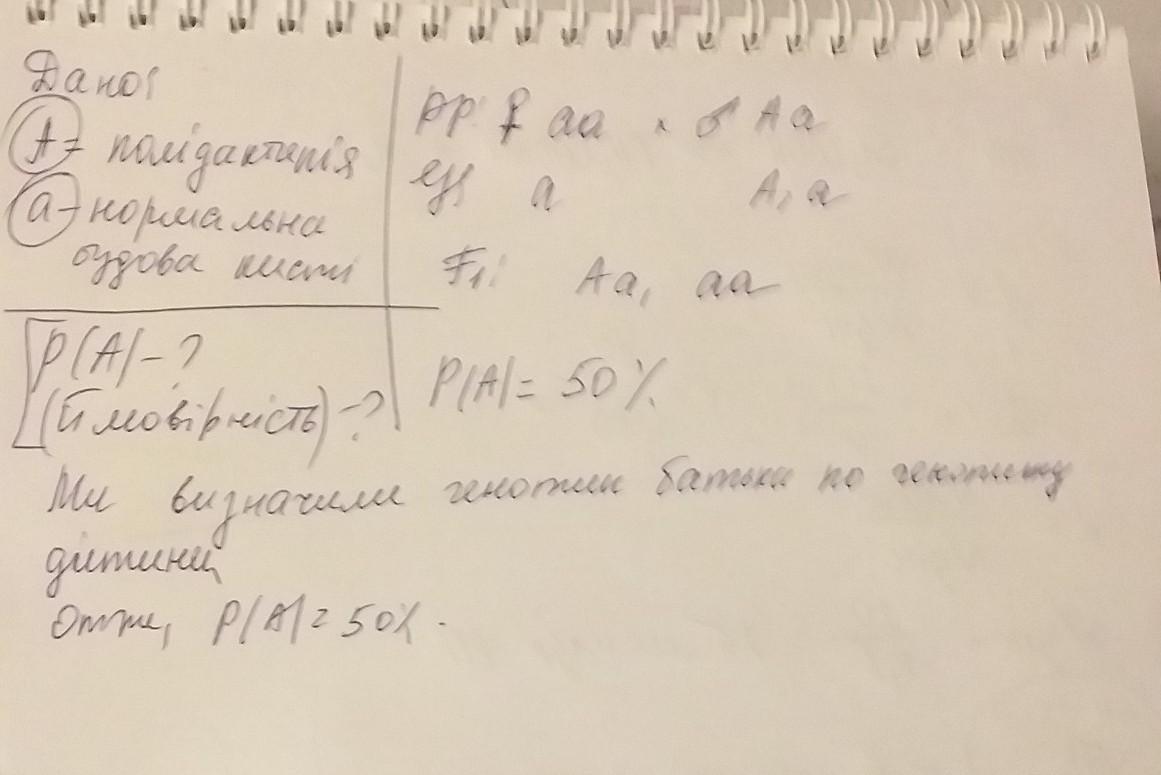 Дано:
A - полідактилія
a - нормальна
будова кисті
P(A) - ?
(Ймовірність) - ?
PP: ♀ aa × ♂ Aa
a A, a
F₁: Aa, aa
P(A) = 50%
Ми визначили генотип батька по генотипу
дитини
Отже, P(A) = 50%.